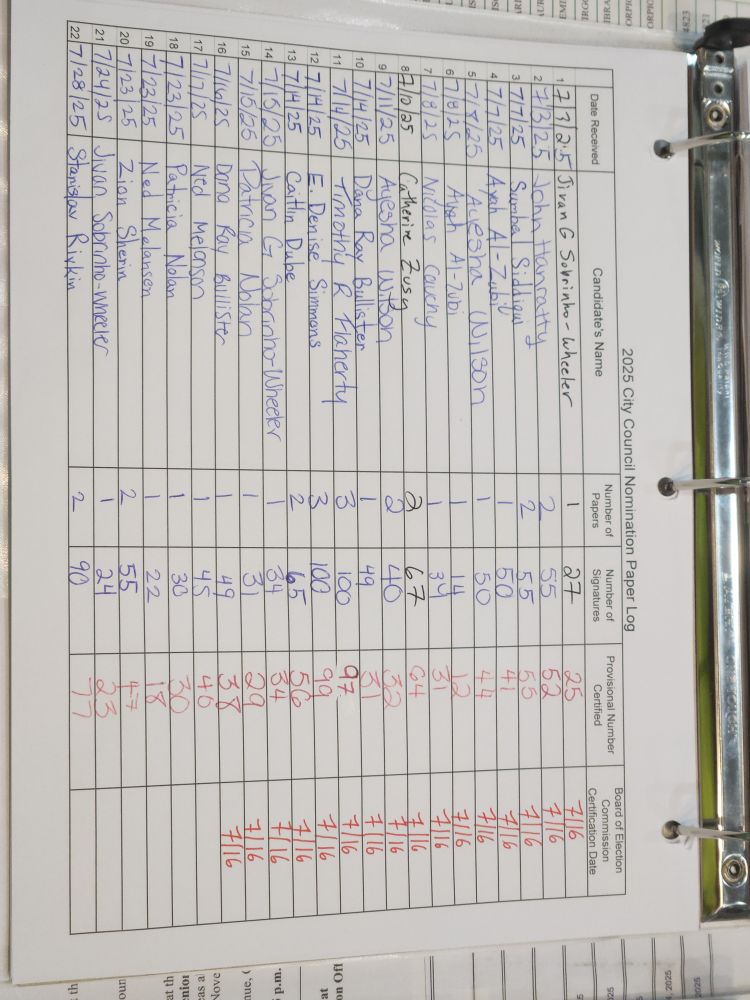 2025 City Council Nomination Paper Log
Date Received Candidate's Name Number of Papers Number of Signatures Provisional Number Certified Board of Election Commission Certification Date
1 7/3/25 Jivan G Sobrinho-Wheeler 1 27 25 7/16
2 7/3/25 John Hanratty 2 55 52 7/16
3 7/7/25 Sumbal Siddiqui 2 55 55 7/16
4 7/7/25 Ayah Al-Zubi 1 50 41 7/16
5 7/8/25 Ayesha Wilson 1 50 44 7/16
6 7/8/25 Ayah Al-Zubi 1 14 12 7/16
7 7/8/25 Nicolas 1 34 31 7/16
8 7/0/25 Catherine Zusy 2 67 64 7/16
9 7/11/25 Ayesha Wilson 2 40 32 7/16
10 7/14/25 Dana Ray Bullister 1 49 31 7/16
11 7/14/25 Timothy R Flaherty 3 100 97 7/16
12 7/14/25 E. Denise Simmons 3 100 99 7/16
13 7/14/25 Caitlin Dube 2 65 56 7/16
14 7/15/25 Jivan G Sobrinho-Wheeler 1 34 34 7/16
15 7/15/25 Patricia Nolan 1 31 29 7/16
16 7/16/25 Dana Ray Bullister 1 49 38 7/16
17 7/17/25 Ned Melanson 1 45 40
18 7/23/25 Patricia Nolan 1 30 30
19 7/23/25 Ned Melansen 1 22 18
20 7/23/25 Zion Sherin 2 55 47
21 7/24/25 Jivan Sobrinho-Wheeler 1 24 23
22 7/28/25 Stanislav Rivkin 2 90 77